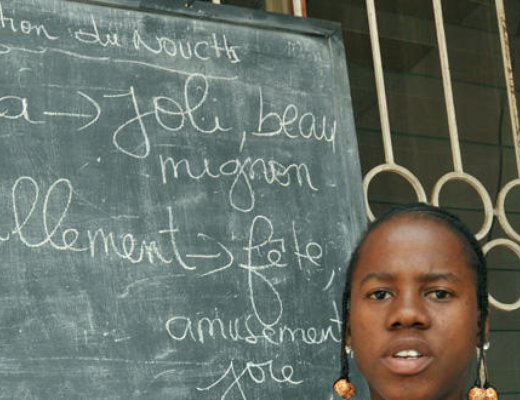 tion du Nouchi
a → Joli, beau
mignon
allement → fête,
amusement
joie